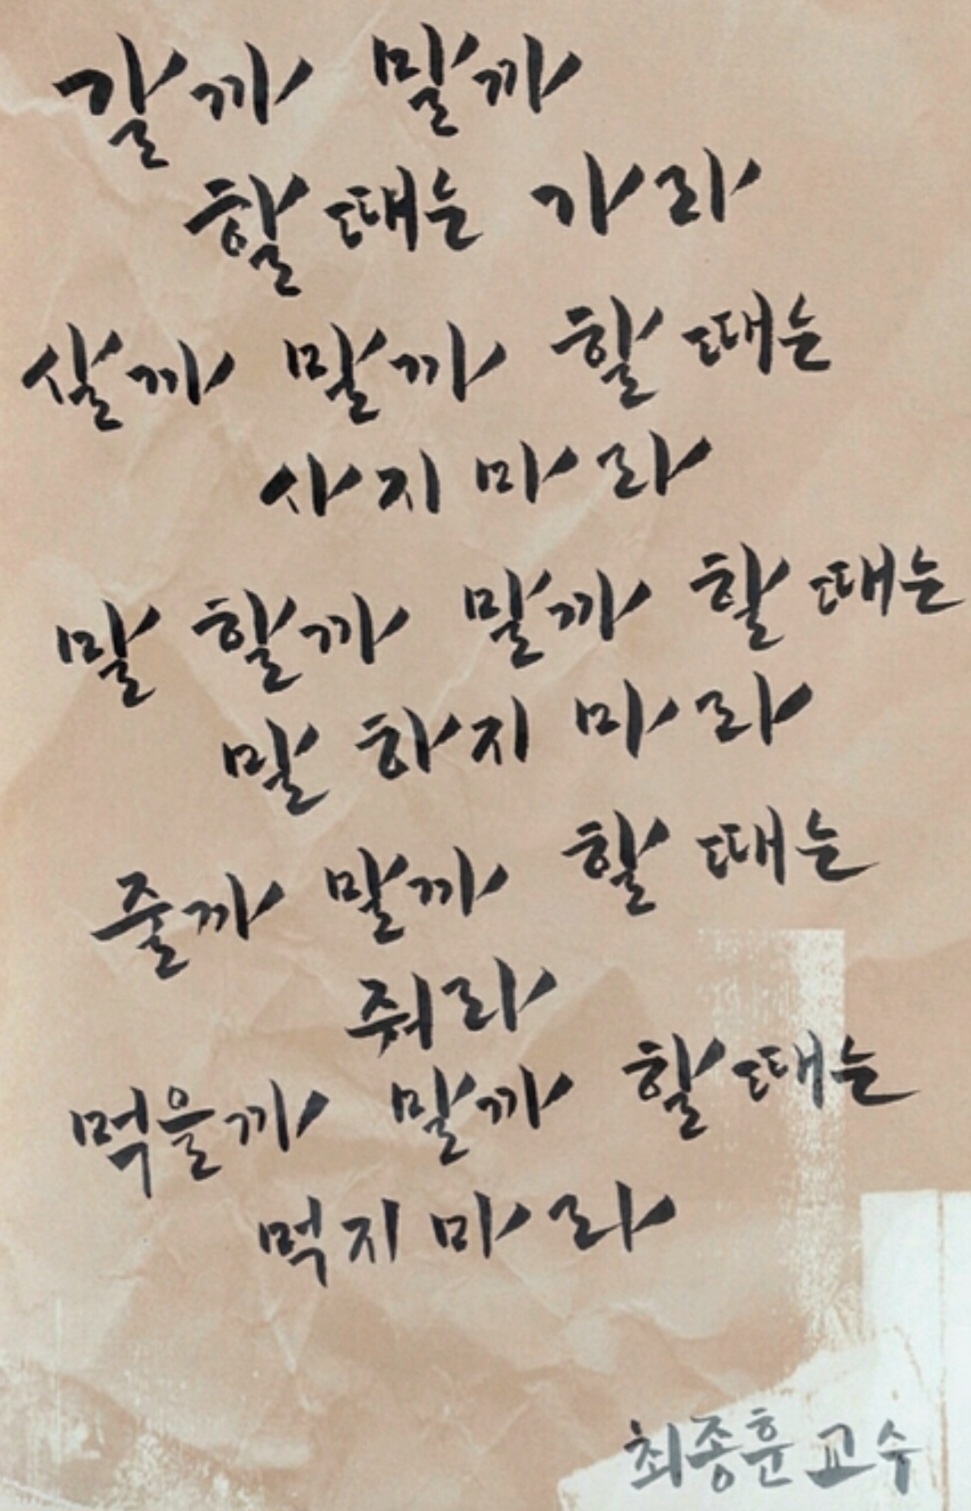 갈까 말까
할때는 가라
살까 말까 할때는
사지 마라
말 할까 말까 할 때는
말 하지 마라
줄까 말까 할 때는
줘라
먹을까 말까 할때는
먹지 마라
최종훈 교수